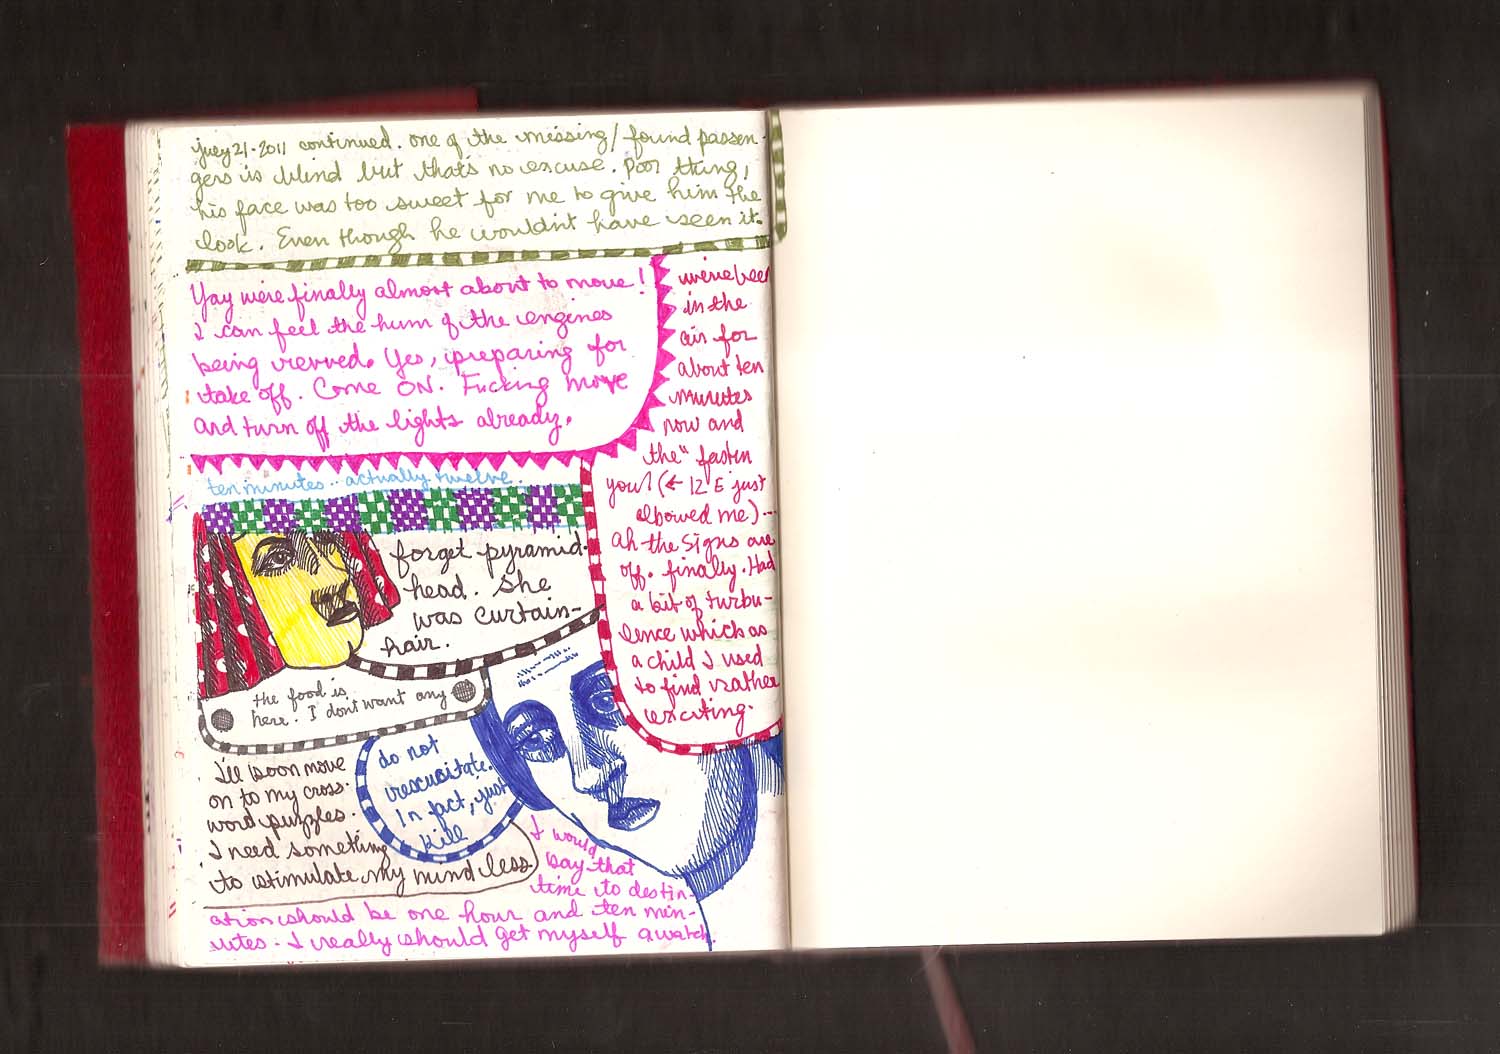 july 21. 2011 continued. one of the missing/found passen-
gers is blind but that's no excuse. Poor thing,
his face was too sweet for me to give him the
look. Even though he wouldn't have seen it.
Yay we're finally almost about to move!
I can feel the hum of the engines
being revved. Yes, preparing for
take off. Come ON. Fucking move
and turn off the lights already.
we've been
in the
air for
about ten
minutes
now and
the "fasten
your (← 12 E just
elbowed me)...
ah the signs are
off. finally. Had
a bit of turbu-
lence which as
a child I used
to find rather
exciting.
ten minutes.. actually twelve.
forget pyramid-
head. She
was curtain-
hair.
the food is
here. I don't want any
do not
resuscitate.
In fact, just
kill
I'll soon move
on to my cross-
word puzzles.
I need something
to stimulate my mind less.
I would
say that
time to destin-
ation should be one hour and ten min-
utes. I really should get myself a watch.